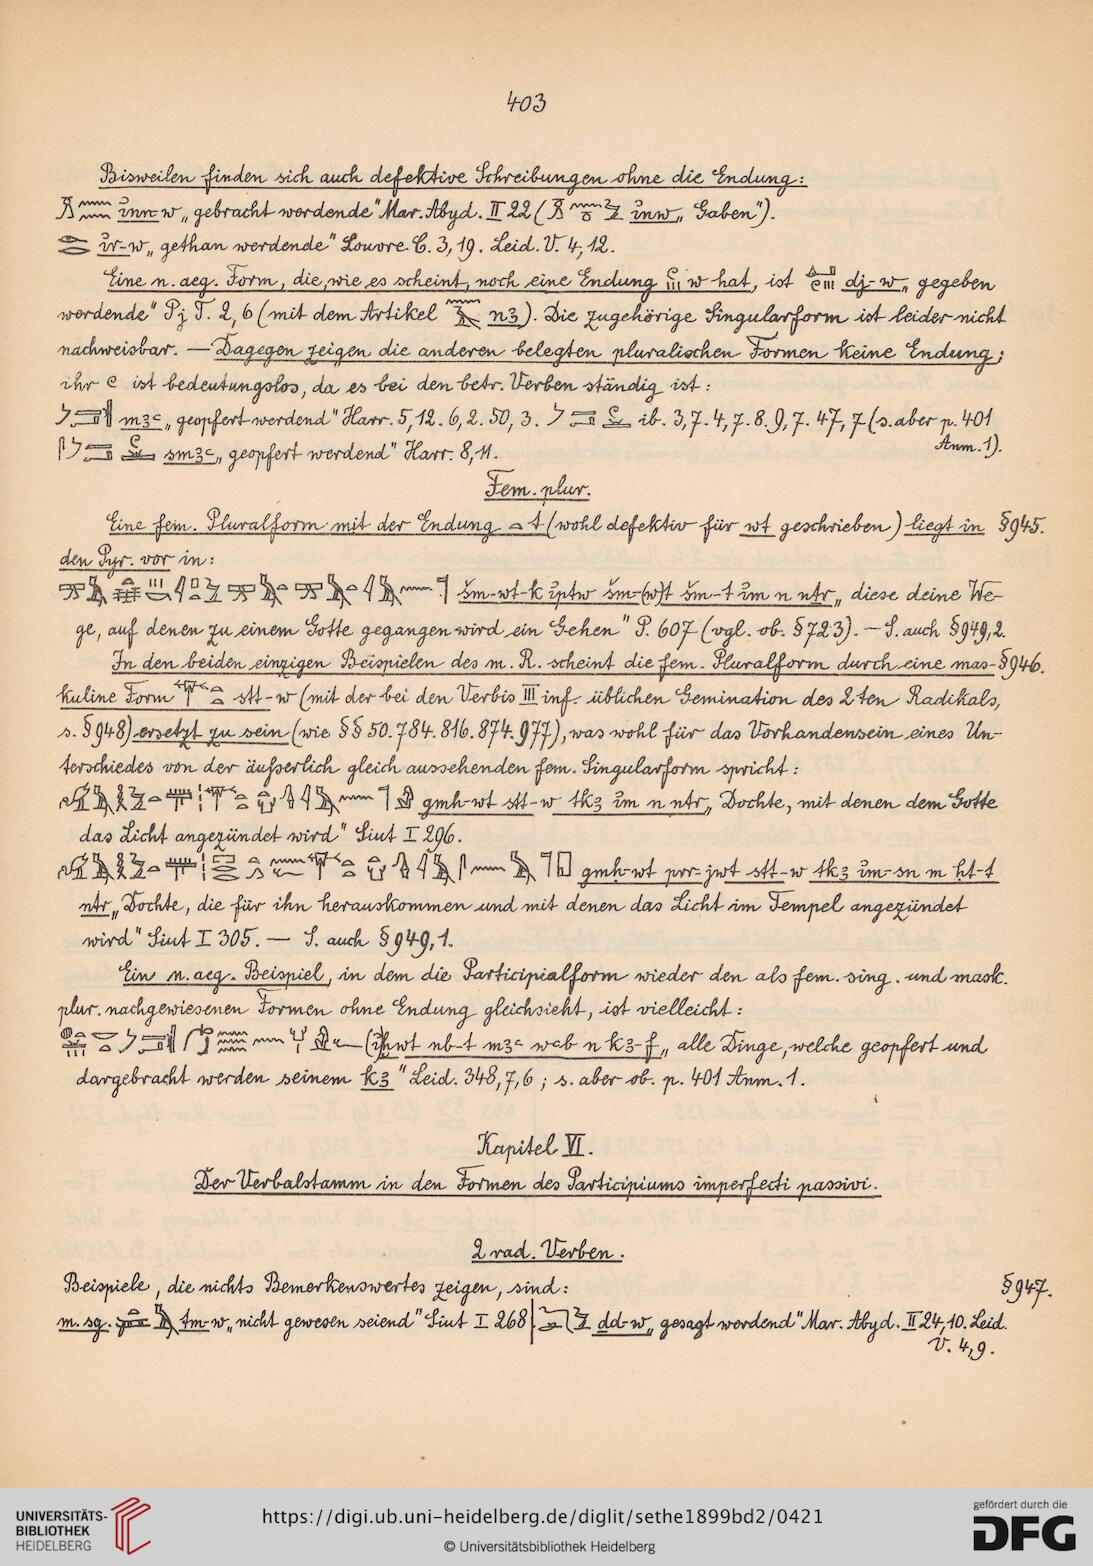 403
Bisweilen finden sich auch defektive Schreibungen ohne die Endung:
ỉnn-w „gebracht werdende" Mar. Abyd. II 22 ( ỉnw „Gaben").
ỉr-w „gethan werdende" Louvre C. 3, 19. Leid. V. 4, 12.
Eine n. aeg. Form, die, wie es scheint, noch eine Endung w hat, ist dj-w „gegeben
werdende" Pj T. 2, 6 (mit dem Artikel nꜣ). Die zugehörige Singularform ist leider nicht
nachweisbar. — Dagegen zeigen die anderen belegten pluralischen Formen keine Endung;
ihr ist bedeutungslos, da es bei den betr. Verben ständig ist:
mꜣꜥ „geopfert werdend" Harr. 5, 12. 6, 2. 50, 3. ib. 3, 7. 4, 7. 8. 9, 7. 47, 7 (s. aber p. 401
Anm. 1).
smꜣꜥ „geopfert werdend" Harr. 8, 11.
Fem. plur.
Eine fem. Pluralform mit der Endung t (wohl defektiv für wt geschrieben) liegt in §945.
den Pyr. vor in:
šm-wt-k ỉptw šm-(w)t šm-t ỉm n nṯr „diese deine We-
ge, auf denen zu einem Gotte gegangen wird ein Gehen" P. 607 (vgl. ob. §723). — S. auch §949, 2.
In den beiden einzigen Beispielen des m. R. scheint die fem. Pluralform durch eine mas- §946.
kuline Form stt-w (mit der bei den Verbis III inf. üblichen Gemination des 2ten Radikals,
s. §948) ersetzt zu sein (wie §§ 50. 784. 816. 874. 977), was wohl für das Vorhandensein eines Un-
terschiedes von der äußerlich gleich aussehenden fem. Singularform spricht:
gmḥ-wt stt-w tkꜣ ỉm n nṯr „Dochte, mit denen dem Gotte
das Licht angezündet wird" Siut I 296.
gmḥ-wt prr-jwt stt-w tkꜣ ỉm-sn m ḥt-t
nṯr „Dochte, die für ihn herauskommen und mit denen das Licht im Tempel angezündet
wird" Siut I 305. — S. auch §949, 1.
Ein n. aeg. Beispiel, in dem die Participialform wieder den als fem. sing. und mask.
plur. nachgewiesenen Formen ohne Endung gleichsieht, ist vielleicht:
nb-t mꜣꜥ wꜥb n kꜣ-f „alle Dinge, welche geopfert und
dargebracht werden seinem kꜣ" Leid. 348, 7, 6 ; s. aber ob. p. 401 Anm. 1.
Kapitel VI.
Der Verbalstamm in den Formen des Participiums imperfecti passivi.
2 rad. Verben.
Beispiele, die nichts Bemerkenswertes zeigen, sind: §947.
m. sg. tm-w „nicht gewesen seiend" Siut I 268 | dd-w „gesagt werdend" Mar. Abyd. II 24, 10. Leid.
V. 4, 9.
UNIVERSITÄTS-
BIBLIOTHEK
HEIDELBERG
https://digi.ub.uni-heidelberg.de/diglit/sethe1899bd2/0421
© Universitätsbibliothek Heidelberg
gefördert durch die
DFG